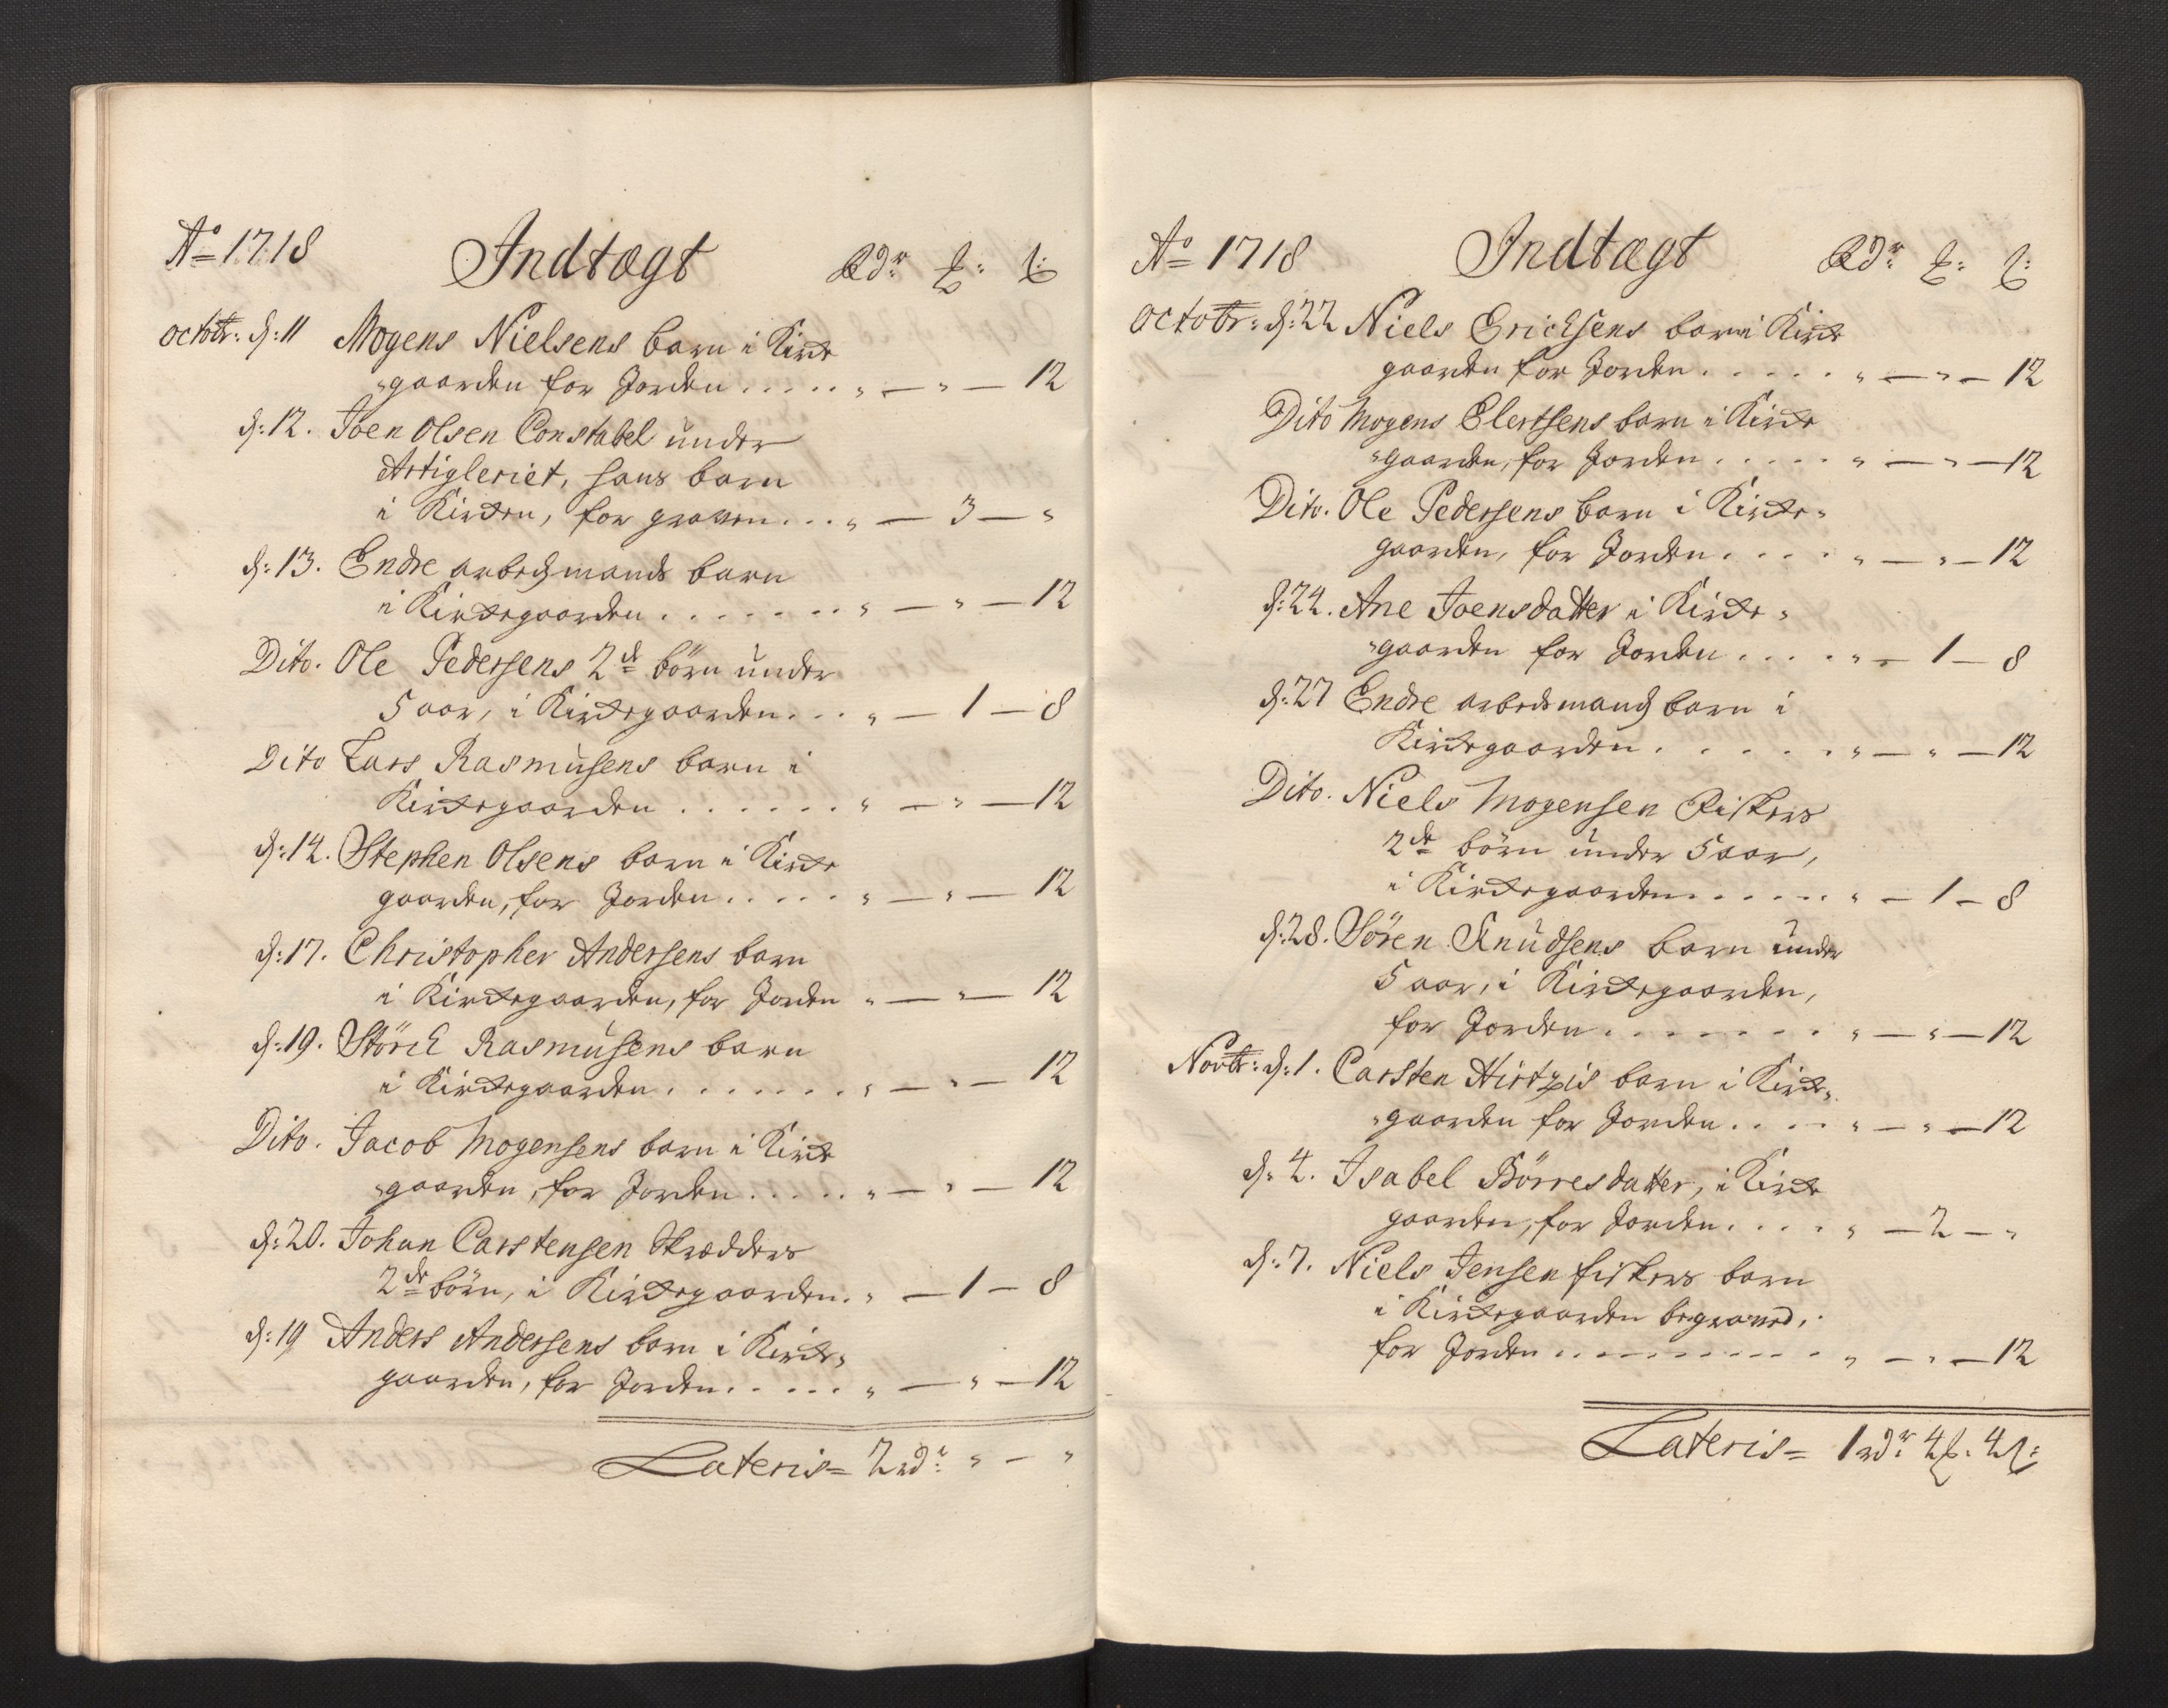 Aº 1718 Indtægt Rdr ß: ß:
Octobr: d: 11 Mogens Nielsens barn i Kirke
gaarden for Jorden ..... " — " — 12
d: 12. Joen Olsen Constabel under
Artigleriet, hans barn
i Kirken, for graven ... " — 3 — "
d: 13. Endre arbedsmands barn
i Kirkegaarden ....... " — " — 12
Dito. Ole Pedersens 2de börn under
5 aar, i Kirkegaarden ... " — 1 — 8
Dito Lars Rasmusens barn i
Kirkegaarden ...... " — " — 12
d: 14. Stephen Olsens barn i Kirke
gaarden, for Jorden ..... " — " — 12
d: 17. Christopher Andersens barn
i Kirkegaarden, for Jorden " — " — 12
d: 19. Störck Rasmusens barn
i Kirkegaarden ....... " — " — 12
Dito. Jacob Mogensens barn i Kirke
gaarden, for Jorden ..... " — " — 12
d: 20. Johan Carstensen Skrædders
2de börn, i Kirkegaarden. " — 1 — 8
d: 19 Anders Andersens barn i Kirke-
gaarden, for Jorden ..... " — " — 12
Lateris = 2 rdr " — "
Aº 1718 Indtægt Rdr ß: ß:
Octobr: d: 22 Niels Erichsens barn i Kirke
gaarden for Jorden ..... " — " — 12
Dito Mogens Elertsens barn i Kirke
gaarden, for Jorden ..... " — " — 12
Dito. Ole Pedersens barn i Kirke-
gaarden, for Jorden .... " — " — 12
d: 24. Ane Joensdatter i Kirke-
gaarden for Jorden .... " — 1 — 8
d: 27 Endre arbedsmands barn i
Kirkegaarden ...... " — " — 12
Dito. Niels Mogensen Fiskers
2de börn under 5 aar,
i Kirkegaarden ..... " — 1 — 8
d: 28. Sören Knudsens barn under
5 aar, i Kirkegaarden,
for Jorden ....... " — " — 12
Novbr: d: 1. Carsten Hirtzis barn i Kirke-
gaarden for Jorden .... " — " — 12
d: 4. Isabel Börresdatter, i Kirke
gaarden, for Jorden .... " — 2 — "
d: 7. Niels Jensen fiskers barn
i Kirkegaarden begraved,
for Jorden ......... " — " — 12
Lateris = 1 rdr 4 ß. 4 ß: